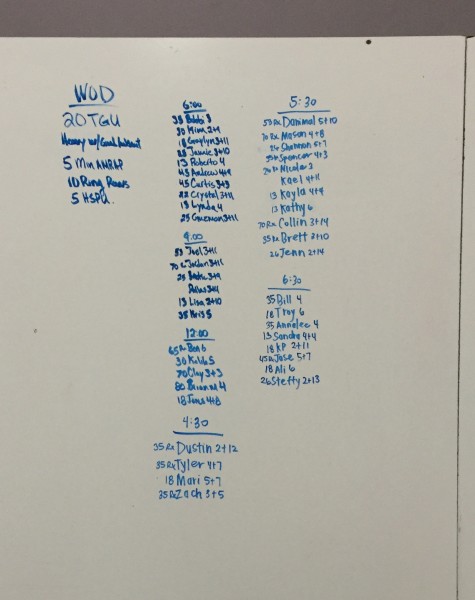 WOD
20 TGU
Heavy w/ Good
5 Min AMRAP
10 Ring Rows
5 HSPU
6:00
35 Bobbi 3
30 Mina 2+9
18 Graylyn 3+11
Jamie 3+10
13 Roberto 4
45 Andrew 4+9
45 Curtis 3+3
22 Crystal 3+11
13 Lynda 4
25 Guzman 3+11
9:00
53 Joel 3+11
70 c Jordan 3+11
25
3+4
13 Lisa 2+10
35 Kris 5
12:00
65 Rx Ben 6
30 Kelsb 5
70 Clay 3+3
80 Brianna 4
18 Jens 4+8
4:30
35 Rx Dustin 2+12
35 Rx Tyler 4+7
18 Mari 5+7
35 Rx Zach 3+5
5:30
50 Rx Danimal 5+10
70 Rx Mason 4+8
26 Shannon 5+7
Spencer 4+3
Nicole 3
Kael 4+11
13 Kayla 4+4
13 Kathy 6
70 Rx Collin 3+14
35 Rx Brett 3+10
26 Jenn 2+14
6:30
35 Bill 4
18 Troy 6
35 Annalee 4
13 Sandra 4+4
18 KP 2+11
45 Rx Jose 5+7
18 Ali 6
26 Steffy 2+13